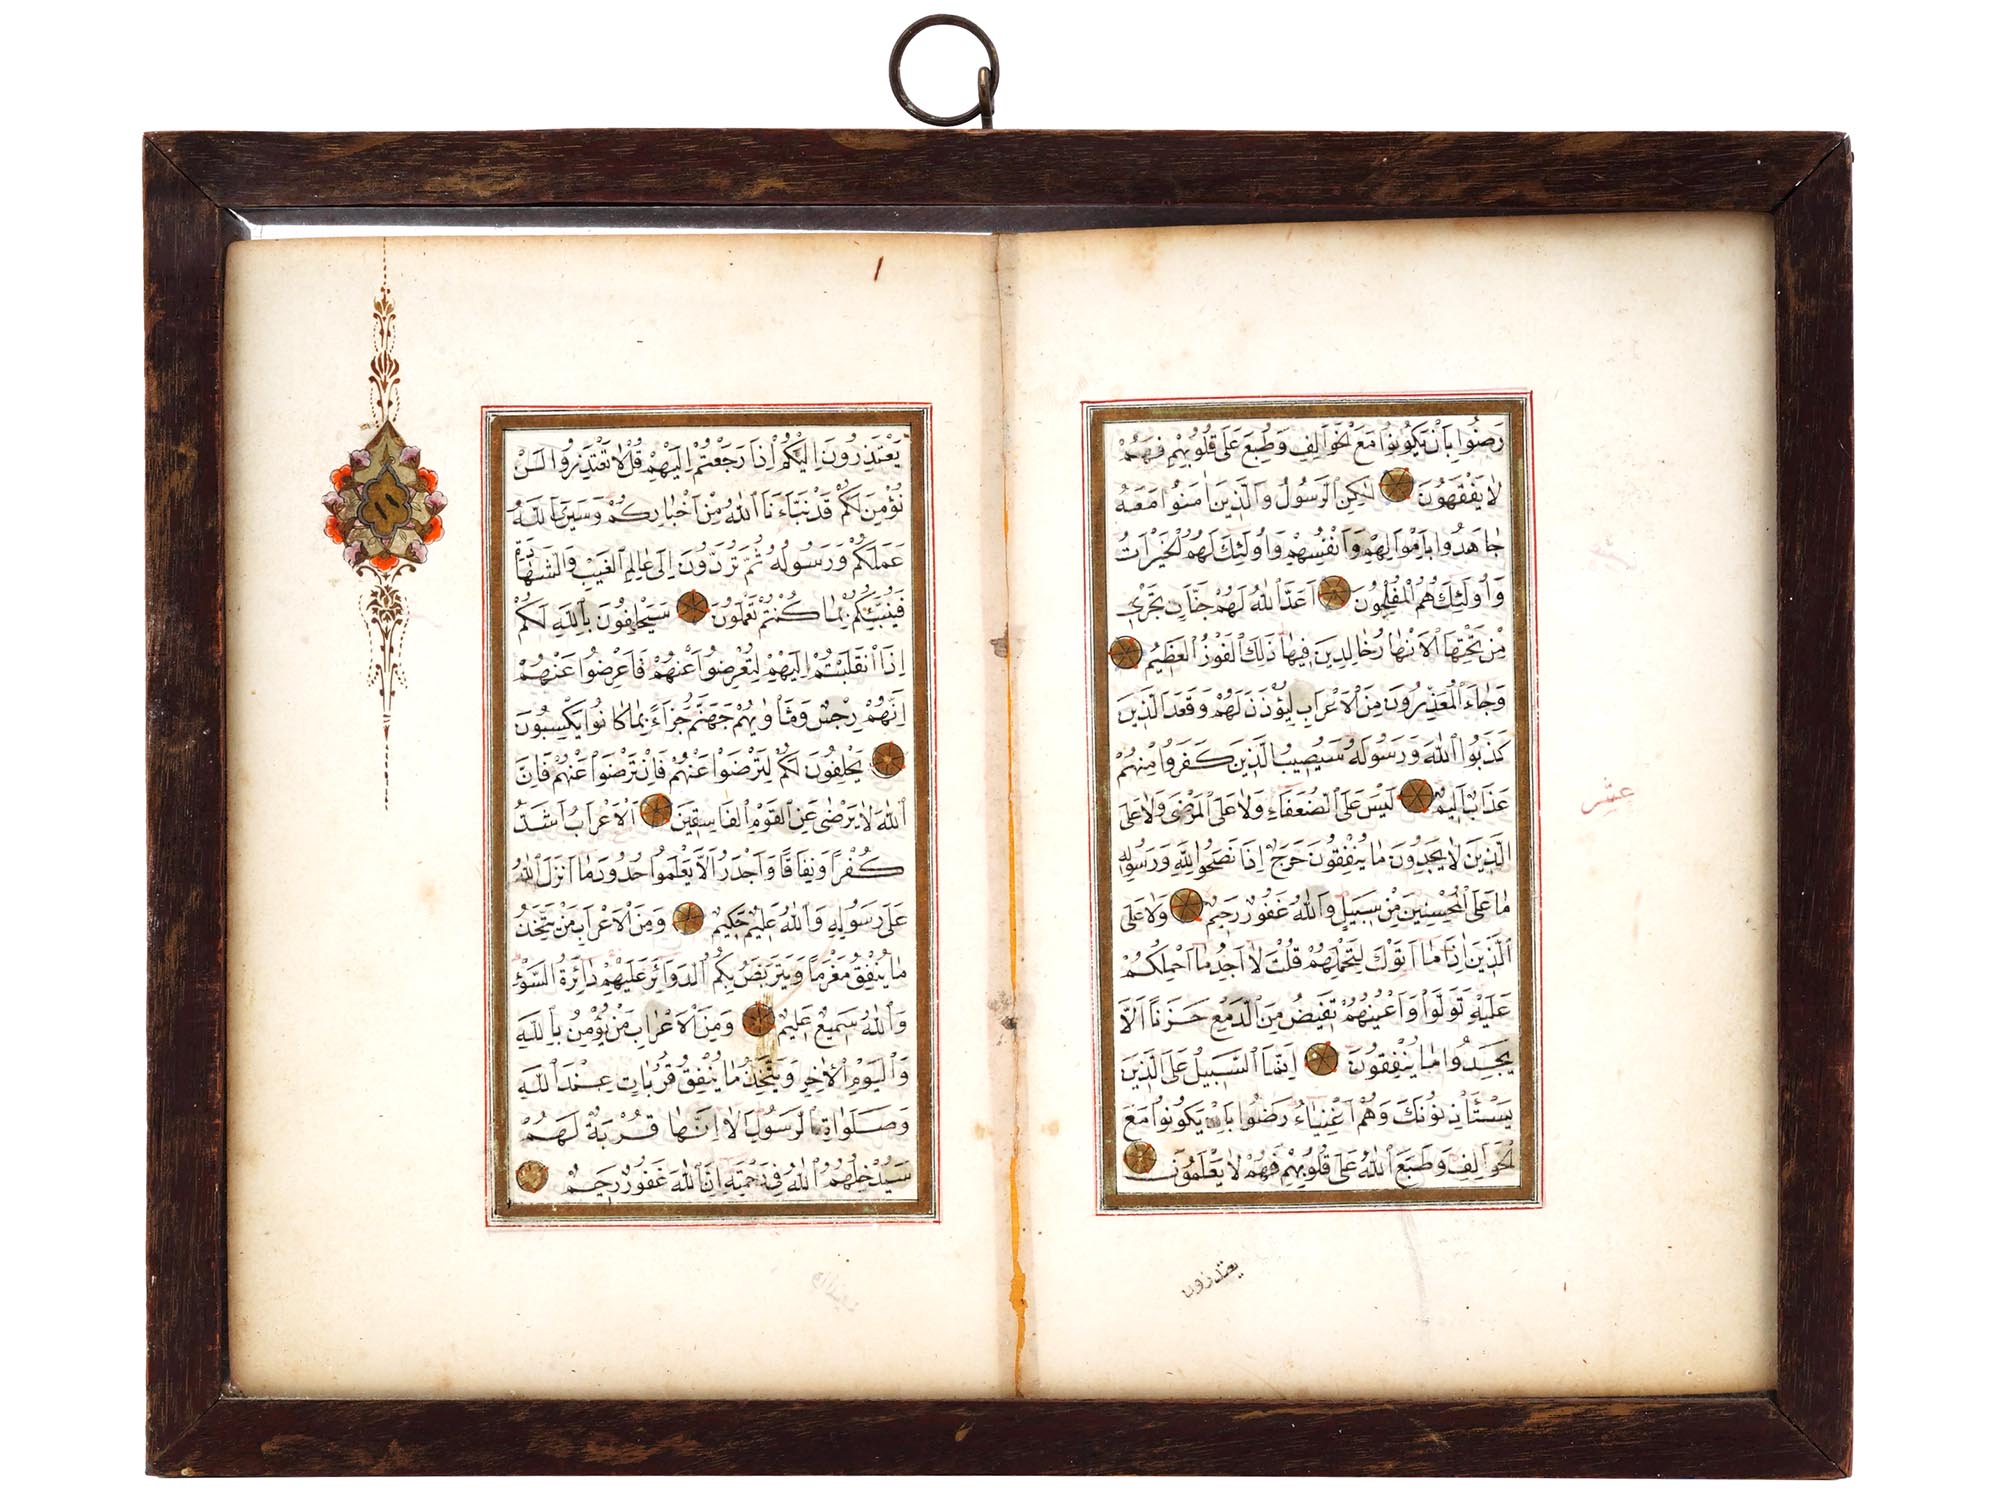 رَضُوا بِاَنْ يَكُونُوا مَعَ الْخَوَالِفِ وَطُبِعَ عَلٰى قُلُوبِهِمْ فَهُمْ
لَا يَفْقَهُونَ لٰكِنِ الرَّسُولُ وَالَّذِينَ اٰمَنُوا مَعَهُ
جَاهَدُوا بِاَمْوَالِهِمْ وَاَنْفُسِهِمْ وَاُولٰئِكَ لَهُمُ الْخَيْرَاتُ
وَاُولٰئِكَ هُمُ الْمُفْلِحُونَ اَعَدَّ اللّٰهُ لَهُمْ جَنَّاتٍ تَجْرِى
مِنْ تَحْتِهَا الْاَنْهَارُ خَالِدِينَ فِيهَا ذٰلِكَ الْفَوْزُ الْعَظِيمُ
وَجَاءَ الْمُعَذِّرُونَ مِنَ الْاَعْرَابِ لِيُؤْذَنَ لَهُمْ وَقَعَدَ الَّذِينَ
كَذَبُوا اللّٰهَ وَرَسُولَهُ سَيُصِيبُ الَّذِينَ كَفَرُوا مِنْهُمْ
عَذَابٌ اَلِيمٌ لَيْسَ عَلَى الضُّعَفَاءِ وَلَا عَلَى الْمَرْضٰى وَلَا عَلَى
الَّذِينَ لَا يَجِدُونَ مَا يُنْفِقُونَ حَرَجٌ اِذَا نَصَحُوا لِلّٰهِ وَرَسُولِهِ
مَا عَلَى الْمُحْسِنِينَ مِنْ سَبِيلٍ وَاللّٰهُ غَفُورٌ رَحِيمٌ وَلَا عَلَى
الَّذِينَ اِذَا مَا اَتَوْكَ لِتَحْمِلَهُمْ قُلْتَ لَا اَجِدُ مَا اَحْمِلُكُمْ
عَلَيْهِ تَوَلَّوْا وَاَعْيُنُهُمْ تَفِيضُ مِنَ الدَّمْعِ حَزَنًا اَلَّا
يَجِدُوا مَا يُنْفِقُونَ اِنَّمَا السَّبِيلُ عَلَى الَّذِينَ
يَسْتَأْذِنُونَكَ وَهُمْ اَغْنِيَاءُ رَضُوا بِاَنْ يَكُونُوا مَعَ
الْخَوَالِفِ وَطَبَعَ اللّٰهُ عَلٰى قُلُوبِهِمْ فَهُمْ لَا يَعْلَمُونَ
يعتذرون
عشر
يَعْتَذِرُونَ اِلَيْكُمْ اِذَا رَجَعْتُمْ اِلَيْهِمْ قُلْ لَا تَعْتَذِرُوا لَنْ
نُؤْمِنَ لَكُمْ قَدْ نَبَّاَنَا اللّٰهُ مِنْ اَخْبَارِكُمْ وَسَيَرَى اللّٰهُ
عَمَلَكُمْ وَرَسُولُهُ ثُمَّ تُرَدُّونَ اِلٰى عَالِمِ الْغَيْبِ وَالشَّهَادَةِ
فَيُنَبِّئُكُمْ بِمَا كُنْتُمْ تَعْمَلُونَ سَيَحْلِفُونَ بِاللّٰهِ لَكُمْ
اِذَا انْقَلَبْتُمْ اِلَيْهِمْ لِتُعْرِضُوا عَنْهُمْ فَاَعْرِضُوا عَنْهُمْ
اِنَّهُمْ رِجْسٌ وَمَأْوٰيهُمْ جَهَنَّمُ جَزَاءً بِمَا كَانُوا يَكْسِبُونَ
يَحْلِفُونَ لَكُمْ لِتَرْضَوْا عَنْهُمْ فَاِنْ تَرْضَوْا عَنْهُمْ فَاِنَّ
اللّٰهَ لَا يَرْضٰى عَنِ الْقَوْمِ الْفَاسِقِينَ اَلْاَعْرَابُ اَشَدُّ
كُفْرًا وَنِفَاقًا وَاَجْدَرُ اَلَّا يَعْلَمُوا حُدُودَ مَا اَنْزَلَ اللّٰهُ
عَلٰى رَسُولِهِ وَاللّٰهُ عَلِيمٌ حَكِيمٌ وَمِنَ الْاَعْرَابِ مَنْ يَتَّخِذُ
مَا يُنْفِقُ مَغْرَمًا وَيَتَرَبَّصُ بِكُمُ الدَّوَائِرَ عَلَيْهِمْ دَائِرَةُ السَّوْءِ
وَاللّٰهُ سَمِيعٌ عَلِيمٌ وَمِنَ الْاَعْرَابِ مَنْ يُؤْمِنُ بِاللّٰهِ
وَالْيَوْمِ الْاٰخِرِ وَيَتَّخِذُ مَا يُنْفِقُ قُرُبَاتٍ عِنْدَ اللّٰهِ
وَصَلَوَاتِ الرَّسُولِ اَلَا اِنَّهَا قُرْبَةٌ لَهُمْ
سَيُدْخِلُهُمُ اللّٰهُ فِى رَحْمَتِهِ اِنَّ اللّٰهَ غَفُورٌ رَحِيمٌ
١١